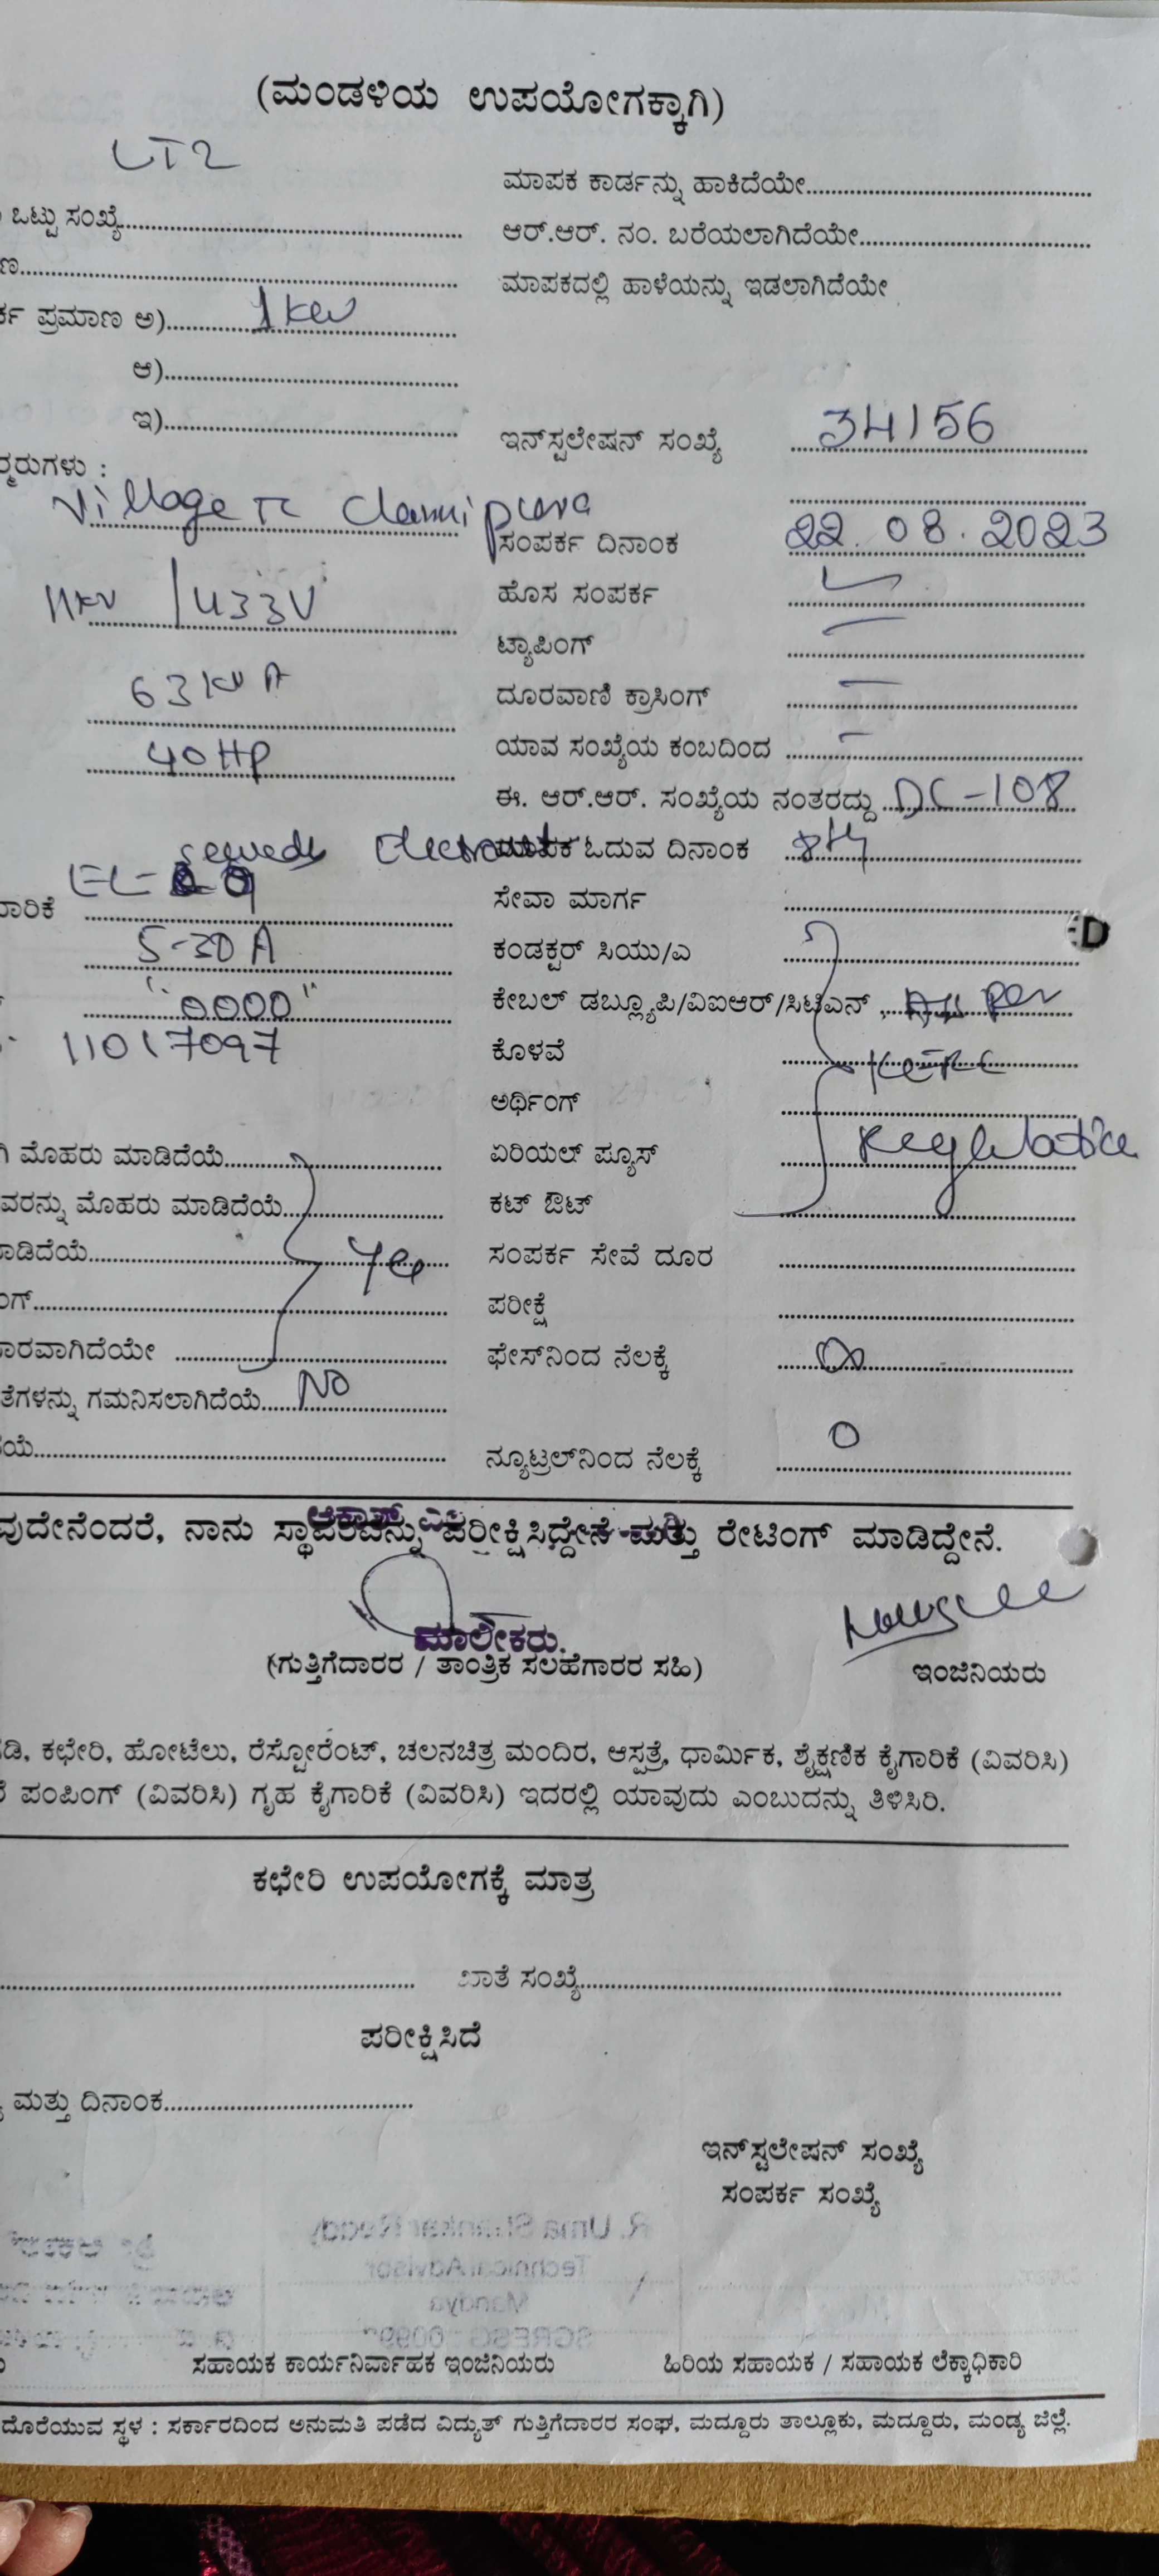 (ಮಂಡಳಿಯ ಉಪಯೋಗಕ್ಕಾಗಿ)
LT2
ಮಾಪಕ ಕಾರ್ಡನ್ನು ಹಾಕಿದೆಯೇ
ಒಟ್ಟು ಸಂಖ್ಯೆ
ಆರ್.ಆರ್. ನಂ. ಬರೆಯಲಾಗಿದೆಯೇ
ಮಾಪಕದಲ್ಲಿ ಹಾಳೆಯನ್ನು ಇಡಲಾಗಿದೆಯೇ
ಪ್ರಮಾಣ ಅ) 1 kw
ಆ)
ಇ)
ಇನ್‌ಸ್ಟಲೇಷನ್ ಸಂಖ್ಯೆ 34156
Village TC
ಸಂಪರ್ಕ ದಿನಾಂಕ 22.08.2023
ಹೊಸ ಸಂಪರ್ಕ
11KV / 433V
ಟ್ಯಾಪಿಂಗ್
63 KVA ದೂರವಾಣಿ ಕ್ರಾಸಿಂಗ್
40 HP ಯಾವ ಸಂಖ್ಯೆಯ ಕಂಬದಿಂದ
ಈ. ಆರ್.ಆರ್. ಸಂಖ್ಯೆಯ ನಂತರದ್ದು DC-108
ಓದುವ ದಿನಾಂಕ
ಸೇವಾ ಮಾರ್ಗ
5-30 A ಕಂಡಕ್ಟರ್ ಸಿಯು/ಎ
"0000" ಕೇಬಲ್ ಡಬ್ಲ್ಯೂಪಿ/ವಿಐಆರ್/ಸಿಟಿಎನ್ As per
11017097 ಕೊಳವೆ KERC
ಅರ್ಥಿಂಗ್
ಮೊಹರು ಮಾಡಿದೆಯೆ ಏರಿಯಲ್ ಫ್ಯೂಸ್ Regulation
ಮೊಹರು ಮಾಡಿದೆಯೆ ಕಟ್ ಔಟ್
Yes ಸಂಪರ್ಕ ಸೇವೆ ದೂರ
ಪರೀಕ್ಷೆ
ಫೇಸ್‌ನಿಂದ ನೆಲಕ್ಕೆ ∞
ಗಮನಿಸಲಾಗಿದೆಯೆ No
ನ್ಯೂಟ್ರಲ್‌ನಿಂದ ನೆಲಕ್ಕೆ 0
ನಾನು ಸ್ಥಾವರವನ್ನು ಪರೀಕ್ಷಿಸಿದ್ದೇನೆ ಮತ್ತು ರೇಟಿಂಗ್ ಮಾಡಿದ್ದೇನೆ.
ಮಾಲೀಕರು.
(ಗುತ್ತಿಗೆದಾರರ / ತಾಂತ್ರಿಕ ಸಲಹೆಗಾರರ ಸಹಿ) ಇಂಜಿನಿಯರು
ಕಛೇರಿ, ಹೋಟೆಲು, ರೆಸ್ಟೋರೆಂಟ್, ಚಲನಚಿತ್ರ ಮಂದಿರ, ಆಸ್ಪತ್ರೆ, ಧಾರ್ಮಿಕ, ಶೈಕ್ಷಣಿಕ ಕೈಗಾರಿಕೆ (ವಿವರಿಸಿ)
ಪಂಪಿಂಗ್ (ವಿವರಿಸಿ) ಗೃಹ ಕೈಗಾರಿಕೆ (ವಿವರಿಸಿ) ಇದರಲ್ಲಿ ಯಾವುದು ಎಂಬುದನ್ನು ತಿಳಿಸಿರಿ.
ಕಛೇರಿ ಉಪಯೋಗಕ್ಕೆ ಮಾತ್ರ
ಖಾತೆ ಸಂಖ್ಯೆ
ಪರೀಕ್ಷಿಸಿದೆ
ಮತ್ತು ದಿನಾಂಕ
ಇನ್‌ಸ್ಟಲೇಷನ್ ಸಂಖ್ಯೆ
ಸಂಪರ್ಕ ಸಂಖ್ಯೆ
ಸಹಾಯಕ ಕಾರ್ಯನಿರ್ವಾಹಕ ಇಂಜಿನಿಯರು ಹಿರಿಯ ಸಹಾಯಕ / ಸಹಾಯಕ ಲೆಕ್ಕಾಧಿಕಾರಿ
ದೊರೆಯುವ ಸ್ಥಳ : ಸರ್ಕಾರದಿಂದ ಅನುಮತಿ ಪಡೆದ ವಿದ್ಯುತ್ ಗುತ್ತಿಗೆದಾರರ ಸಂಘ, ಮದ್ದೂರು ತಾಲ್ಲೂಕು, ಮದ್ದೂರು, ಮಂಡ್ಯ ಜಿಲ್ಲೆ.